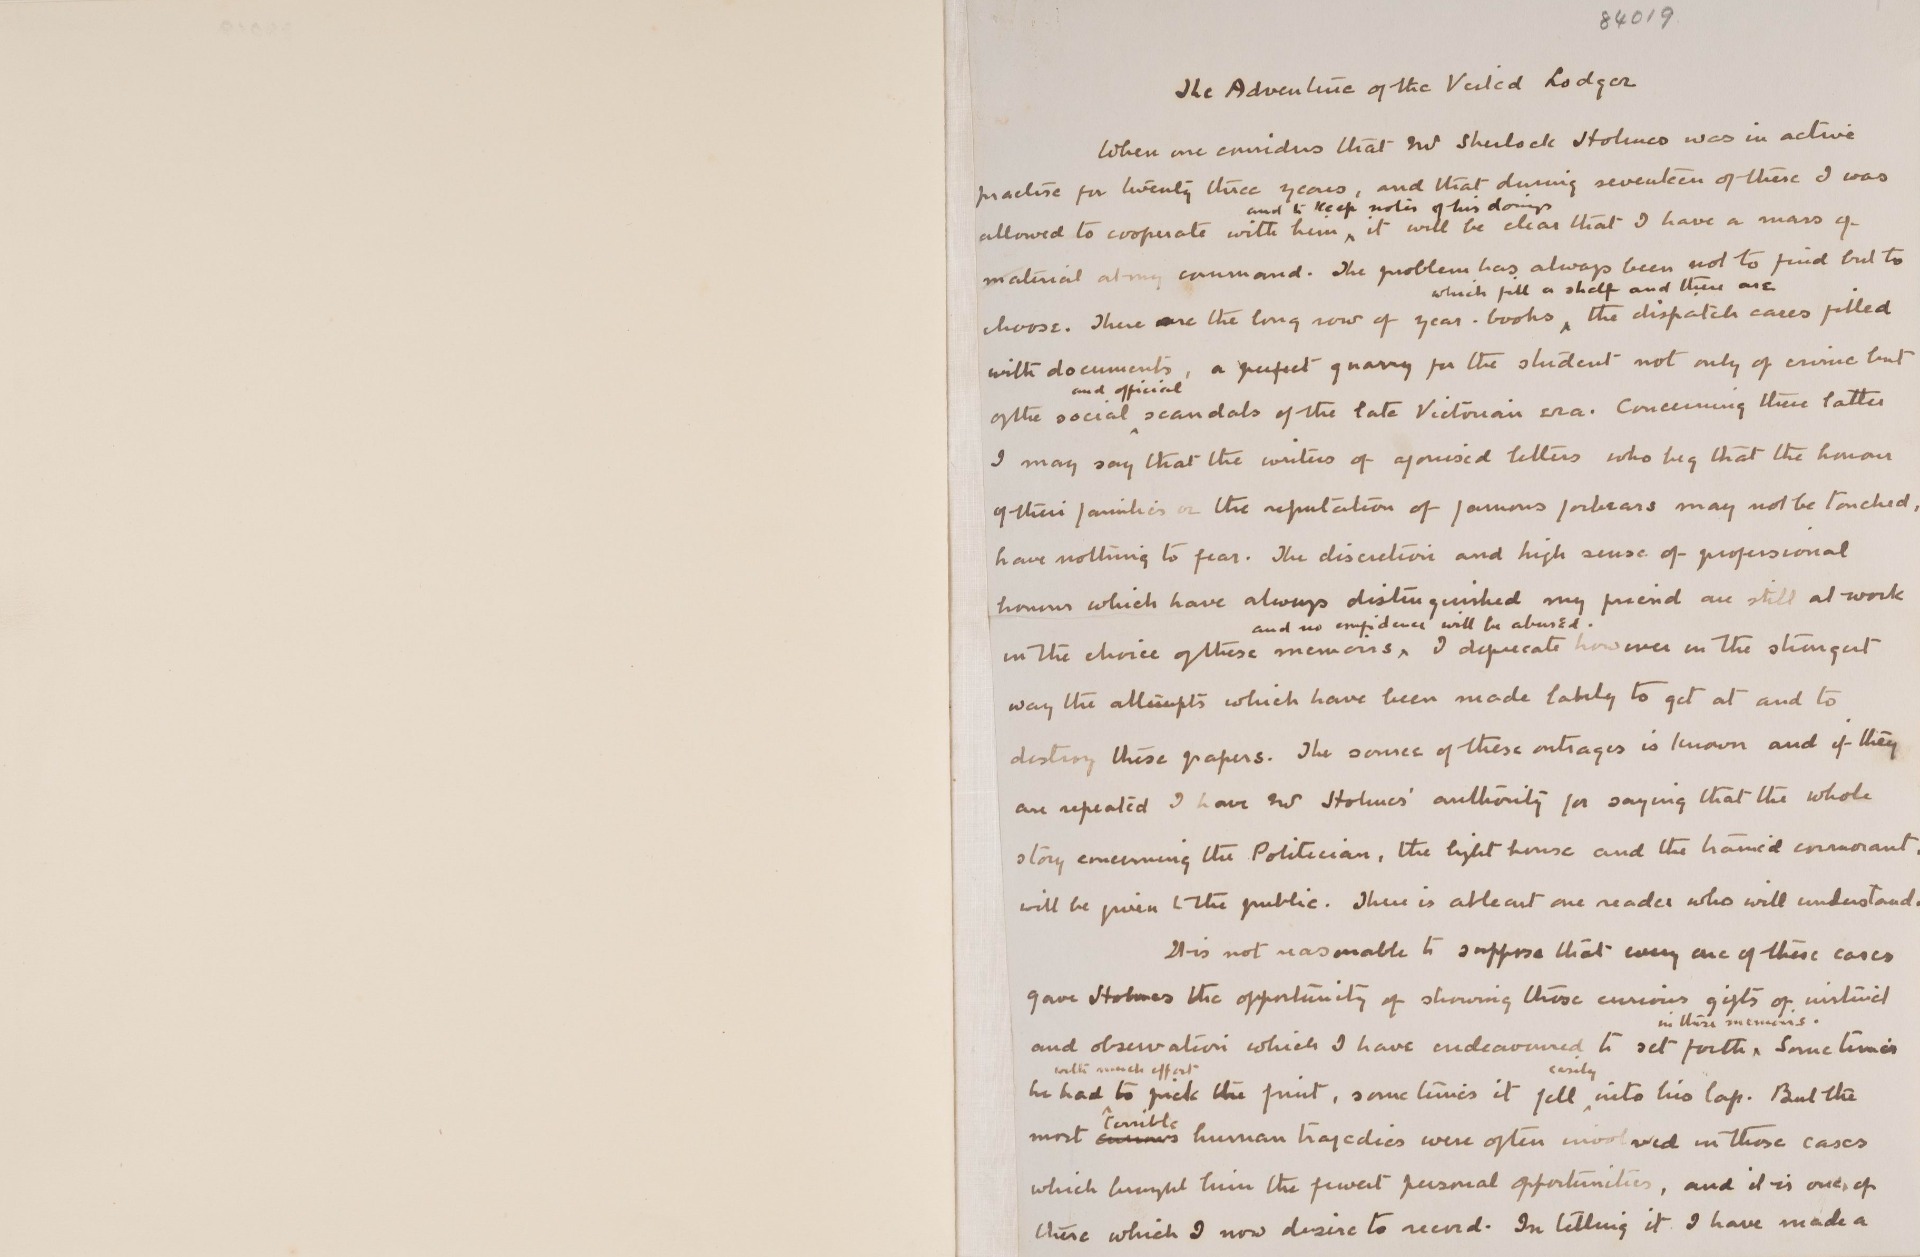 84019
The Adventure of the Veiled Lodger
When one considers that Mr Sherlock Holmes was in active
practise for twenty three years, and that during seventeen of these I was
and to keep notes of his doings
allowed to cooperate with him ‸ it will be clear that I have a mass of
material at my command. The problem has always been not to find but to
which fill a shelf and there are
choose. There are the long row of year-books ‸ the dispatch cases filled
with documents, a perfect quarry for the student not only of crime but
and official
of the social ‸ scandals of the late Victorian era. Concerning these latter
I may say that the writers of agonised letters who beg that the honour
of their families or the reputation of famous forbears may not be touched,
have nothing to fear. The discretion and high sense of professional
honour which have always distinguished my friend are still at work
and no confidence will be abused.
in the choice of these memoirs ‸ I deprecate however in the strongest
way the attempts which have been made lately to get at and to
destroy these papers. The source of these outrages is known and if they
are repeated I have Mr Holmes' authority for saying that the whole
story concerning the Politician, the light house and the trained cormorant.
will be given to the public. There is at least one reader who will understand.
It is not reasonable to suppose that every one of these cases
gave Holmes the opportunity of showing those curious gifts of instinct
in these memoirs.
and observation which I have endeavoured to set forth ‸ Sometimes
with much effort easily
he had ‸ to pick the fruit, sometimes it fell ‸ into his lap. But the
terrible
most curious human tragedies were often involved in those cases
which brought him the fewest personal opportunities, and it is one of
these which I now desire to record. In telling it I have made a